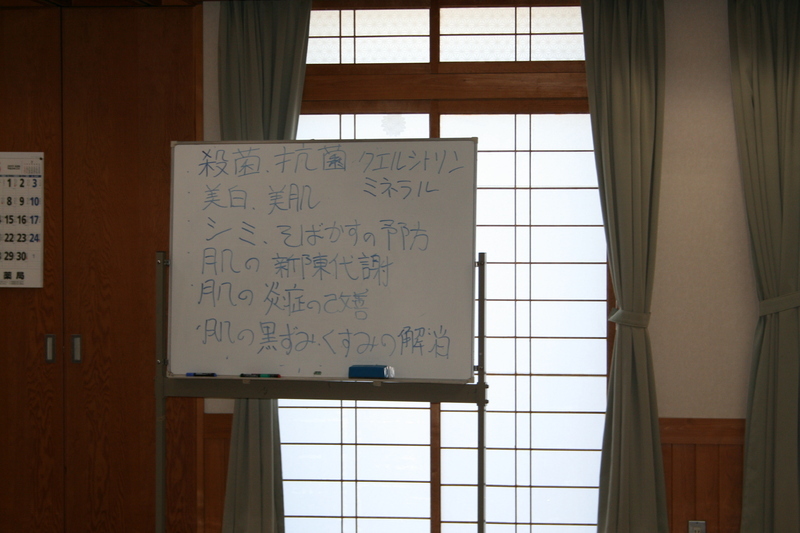 殺菌、抗菌 クエルシトリン
美白、美肌 ミネラル
シミ、そばかすの予防
肌の新陳代謝
肌の炎症の改善
肌の黒ずみ・くすみの解消
1 2 3
8 9 10
15 16 17
22 23 24
29 30
薬局